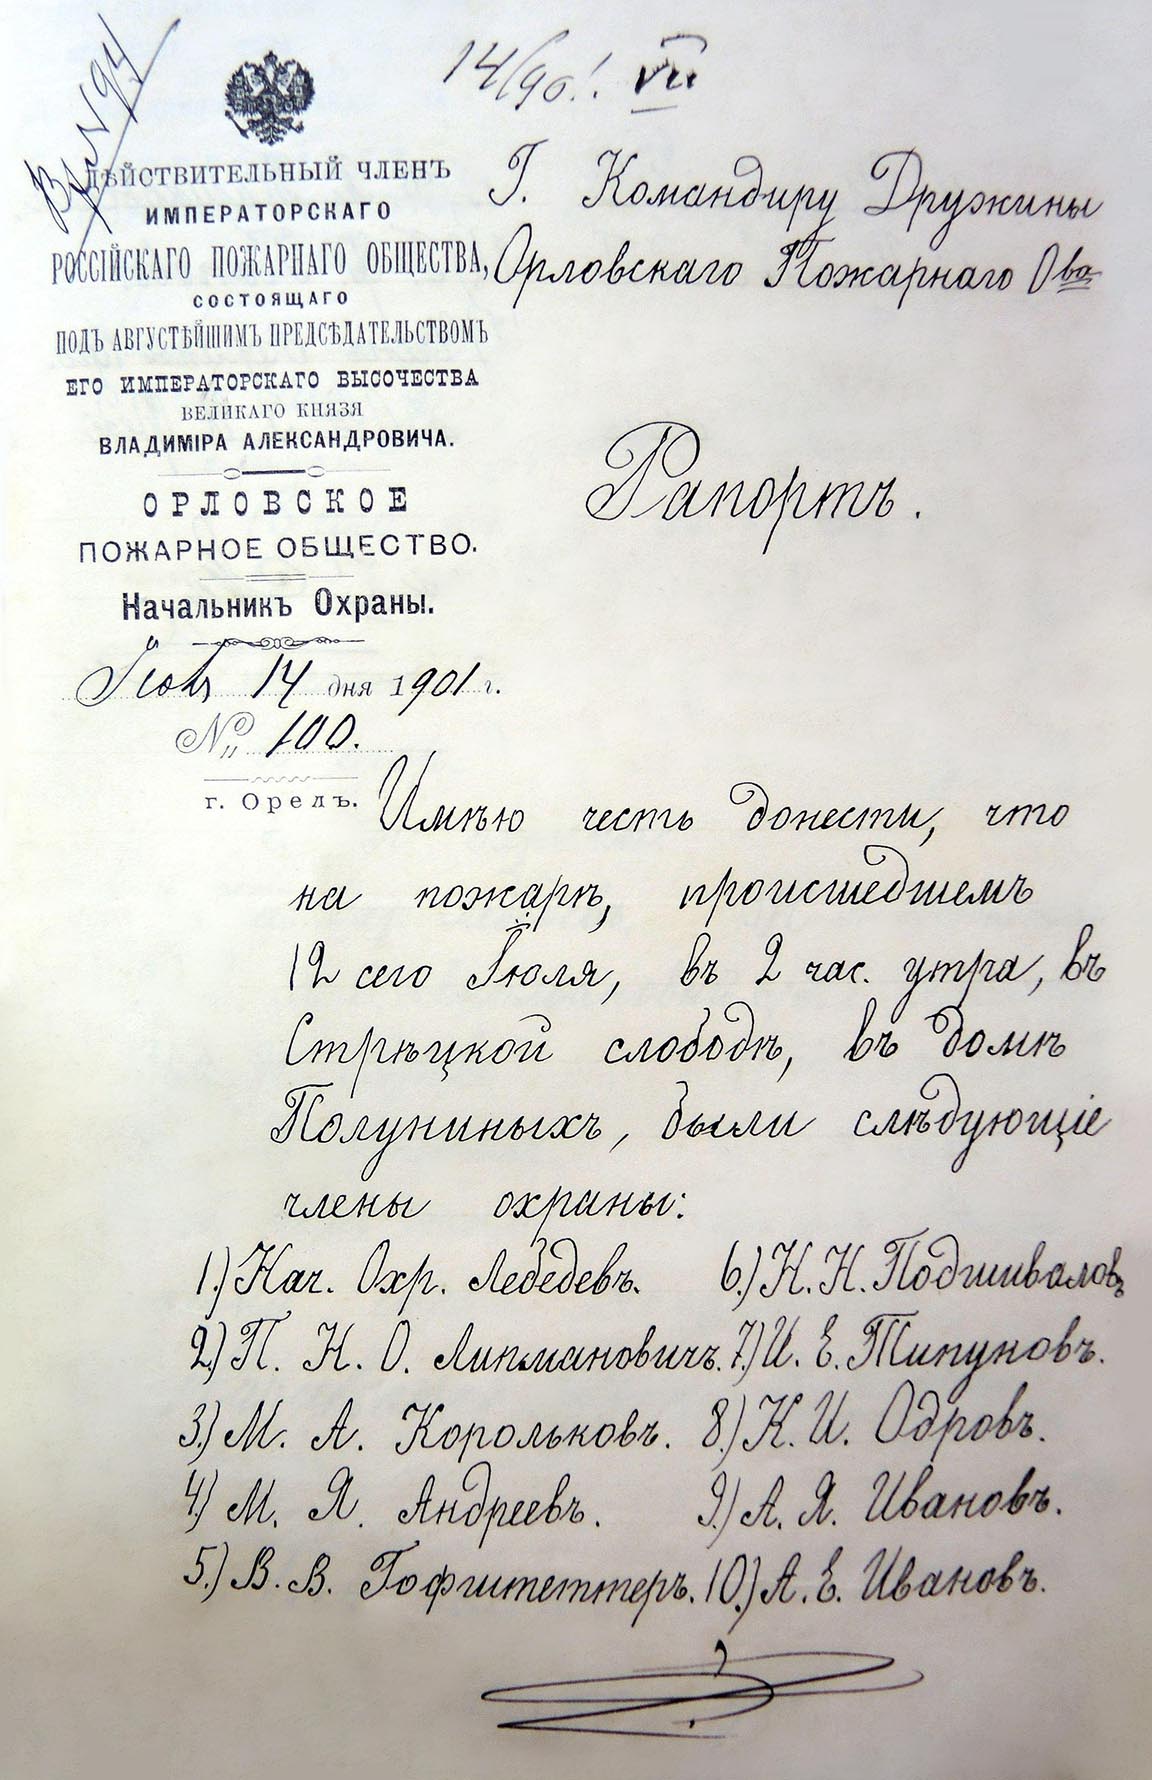 Вх № 94
14/901. VII
ДѢЙСТВИТЕЛЬНЫЙ ЧЛЕНЪ
ИМПЕРАТОРСКАГО
РОССІЙСКАГО ПОЖАРНАГО ОБЩЕСТВА,
СОСТОЯЩАГО
ПОДЪ АВГУСТѢЙШИМЪ ПРЕДСѢДАТЕЛЬСТВОМЪ
ЕГО ИМПЕРАТОРСКАГО ВЫСОЧЕСТВА
ВЕЛИКАГО КНЯЗЯ
ВЛАДИМІРА АЛЕКСАНДРОВИЧА.
ОРЛОВСКОЕ
ПОЖАРНОЕ ОБЩЕСТВО.
Начальникъ Охраны.
14 дня 1901 г.
№ 100.
г. Орелъ.
Г. Командиру Дружины
Орловскаго Пожарнаго О-ва
Рапортъ.
Имѣю честь донести, что
на пожарѣ, происшедшемъ
12 сего Іюля, въ 2 час. утра, въ
Стрѣцкой слободѣ, въ домѣ
Полуниныхъ, были слѣдующіе
члены охраны:
1.) Нач. Охр. Лебедевъ.
2.) П. Н. О. Липмановичъ.
3.) М. А. Корольковъ.
4.) М. Я. Андреевъ.
5.) В. В. Гофштеттеръ.
6.) Н. Н. Подшиваловъ
7.) И. Е. Типуновъ.
8.) К. И. Одровъ.
9.) А. Я. Ивановъ.
10.) А. Е. Ивановъ.